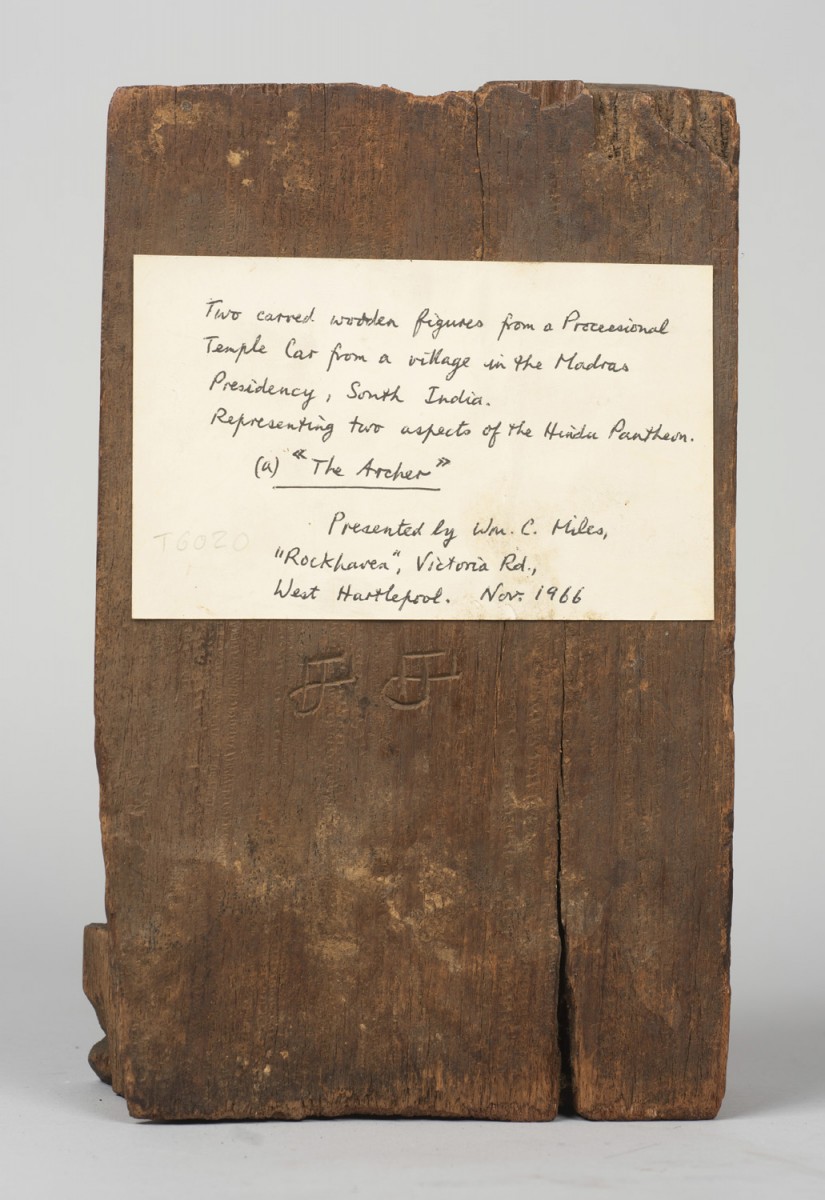 Two carved wooden figures from a Processional
Temple Car from a village in the Madras
Presidency, South India.
Representing two aspects of the Hindu Pantheon.
(a) "The Archer"
Presented by Wm. C. Miles,
"Rockhaven", Victoria Rd.,
West Hartlepool. Nov. 1966
T6020